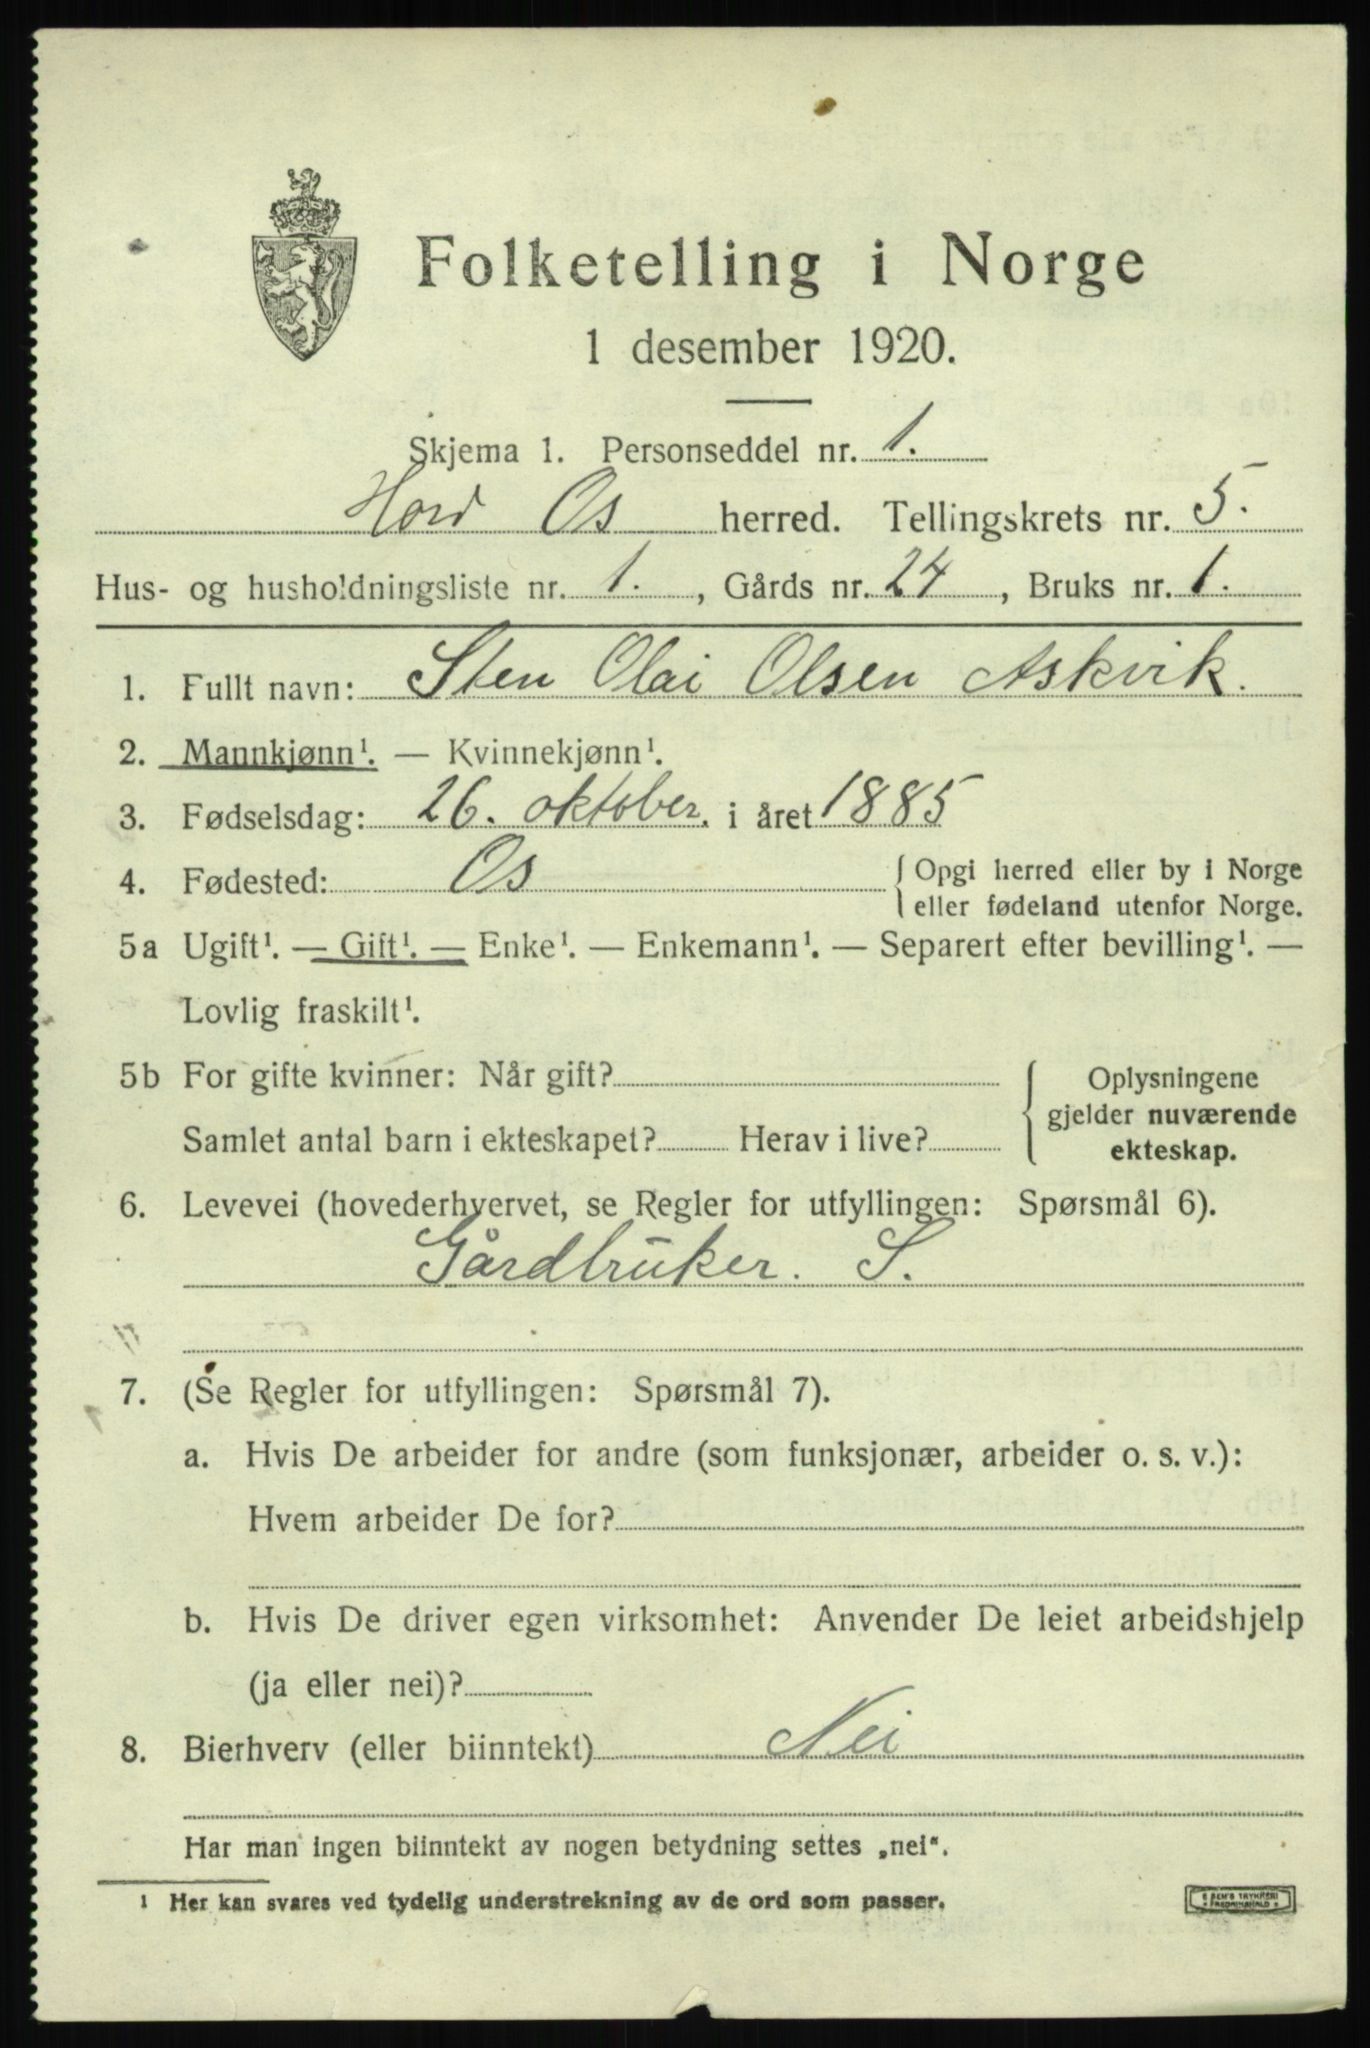 Folketelling i Norge
1 desember 1920.
Skjema 1. Personseddel nr. 1.
Hord Os herred. Tellingskrets nr. 5.
Hus- og husholdningsliste nr. 1. , Gårds nr. 24 , Bruks nr. 1.
1. Fullt navn: Sten Olai Olsen Askvik.
2. Mannkjønn¹. — Kvinnekjønn¹.
3. Fødselsdag: 26. oktober. i året 1885
4. Fødested: Os { Opgi herred eller by i Norge
eller fødeland utenfor Norge.
5a Ugift¹. — Gift¹. — Enke¹. — Enkemann¹. — Separert efter bevilling¹. —
Lovlig fraskilt¹.
5b For gifte kvinner: Når gift? { Oplysningene
gjelder nuværende
Samlet antal barn i ekteskapet? Herav i live? ekteskap.
6. Levevei (hovederhvervet, se Regler for utfyllingen: Spørsmål 6).
Gårdbruker. S.
7. (Se Regler for utfyllingen: Spørsmål 7).
a. Hvis De arbeider for andre (som funksjonær, arbeider o. s. v.):
Hvem arbeider De for?
b. Hvis De driver egen virksomhet: Anvender De leiet arbeidshjelp
(ja eller nei)?
8. Bierhverv (eller biinntekt) Nei
Har man ingen biinntekt av nogen betydning settes „nei“.
¹ Her kan svares ved tydelig understrekning av de ord som passer.